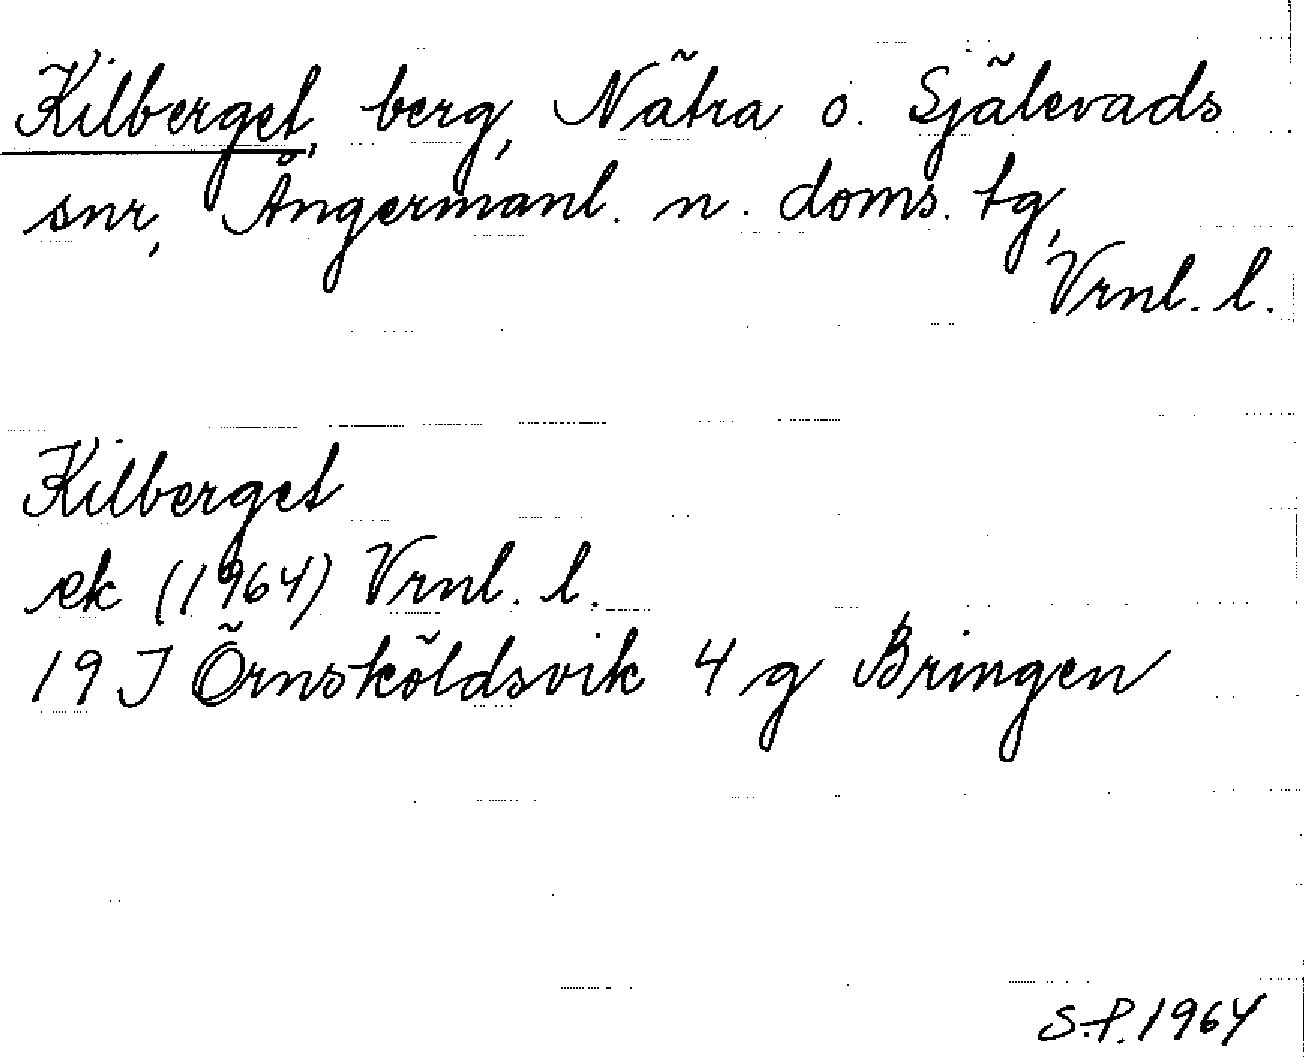 Kilberget, berg, Nätra o. Själevads
snr, Ångermanl. n. doms. tg,
Vrnl. l.
Kilberget
ek (1964) Vrnl. l.
19 J Örnsköldsvik 4 g Bringen
S.P. 1964